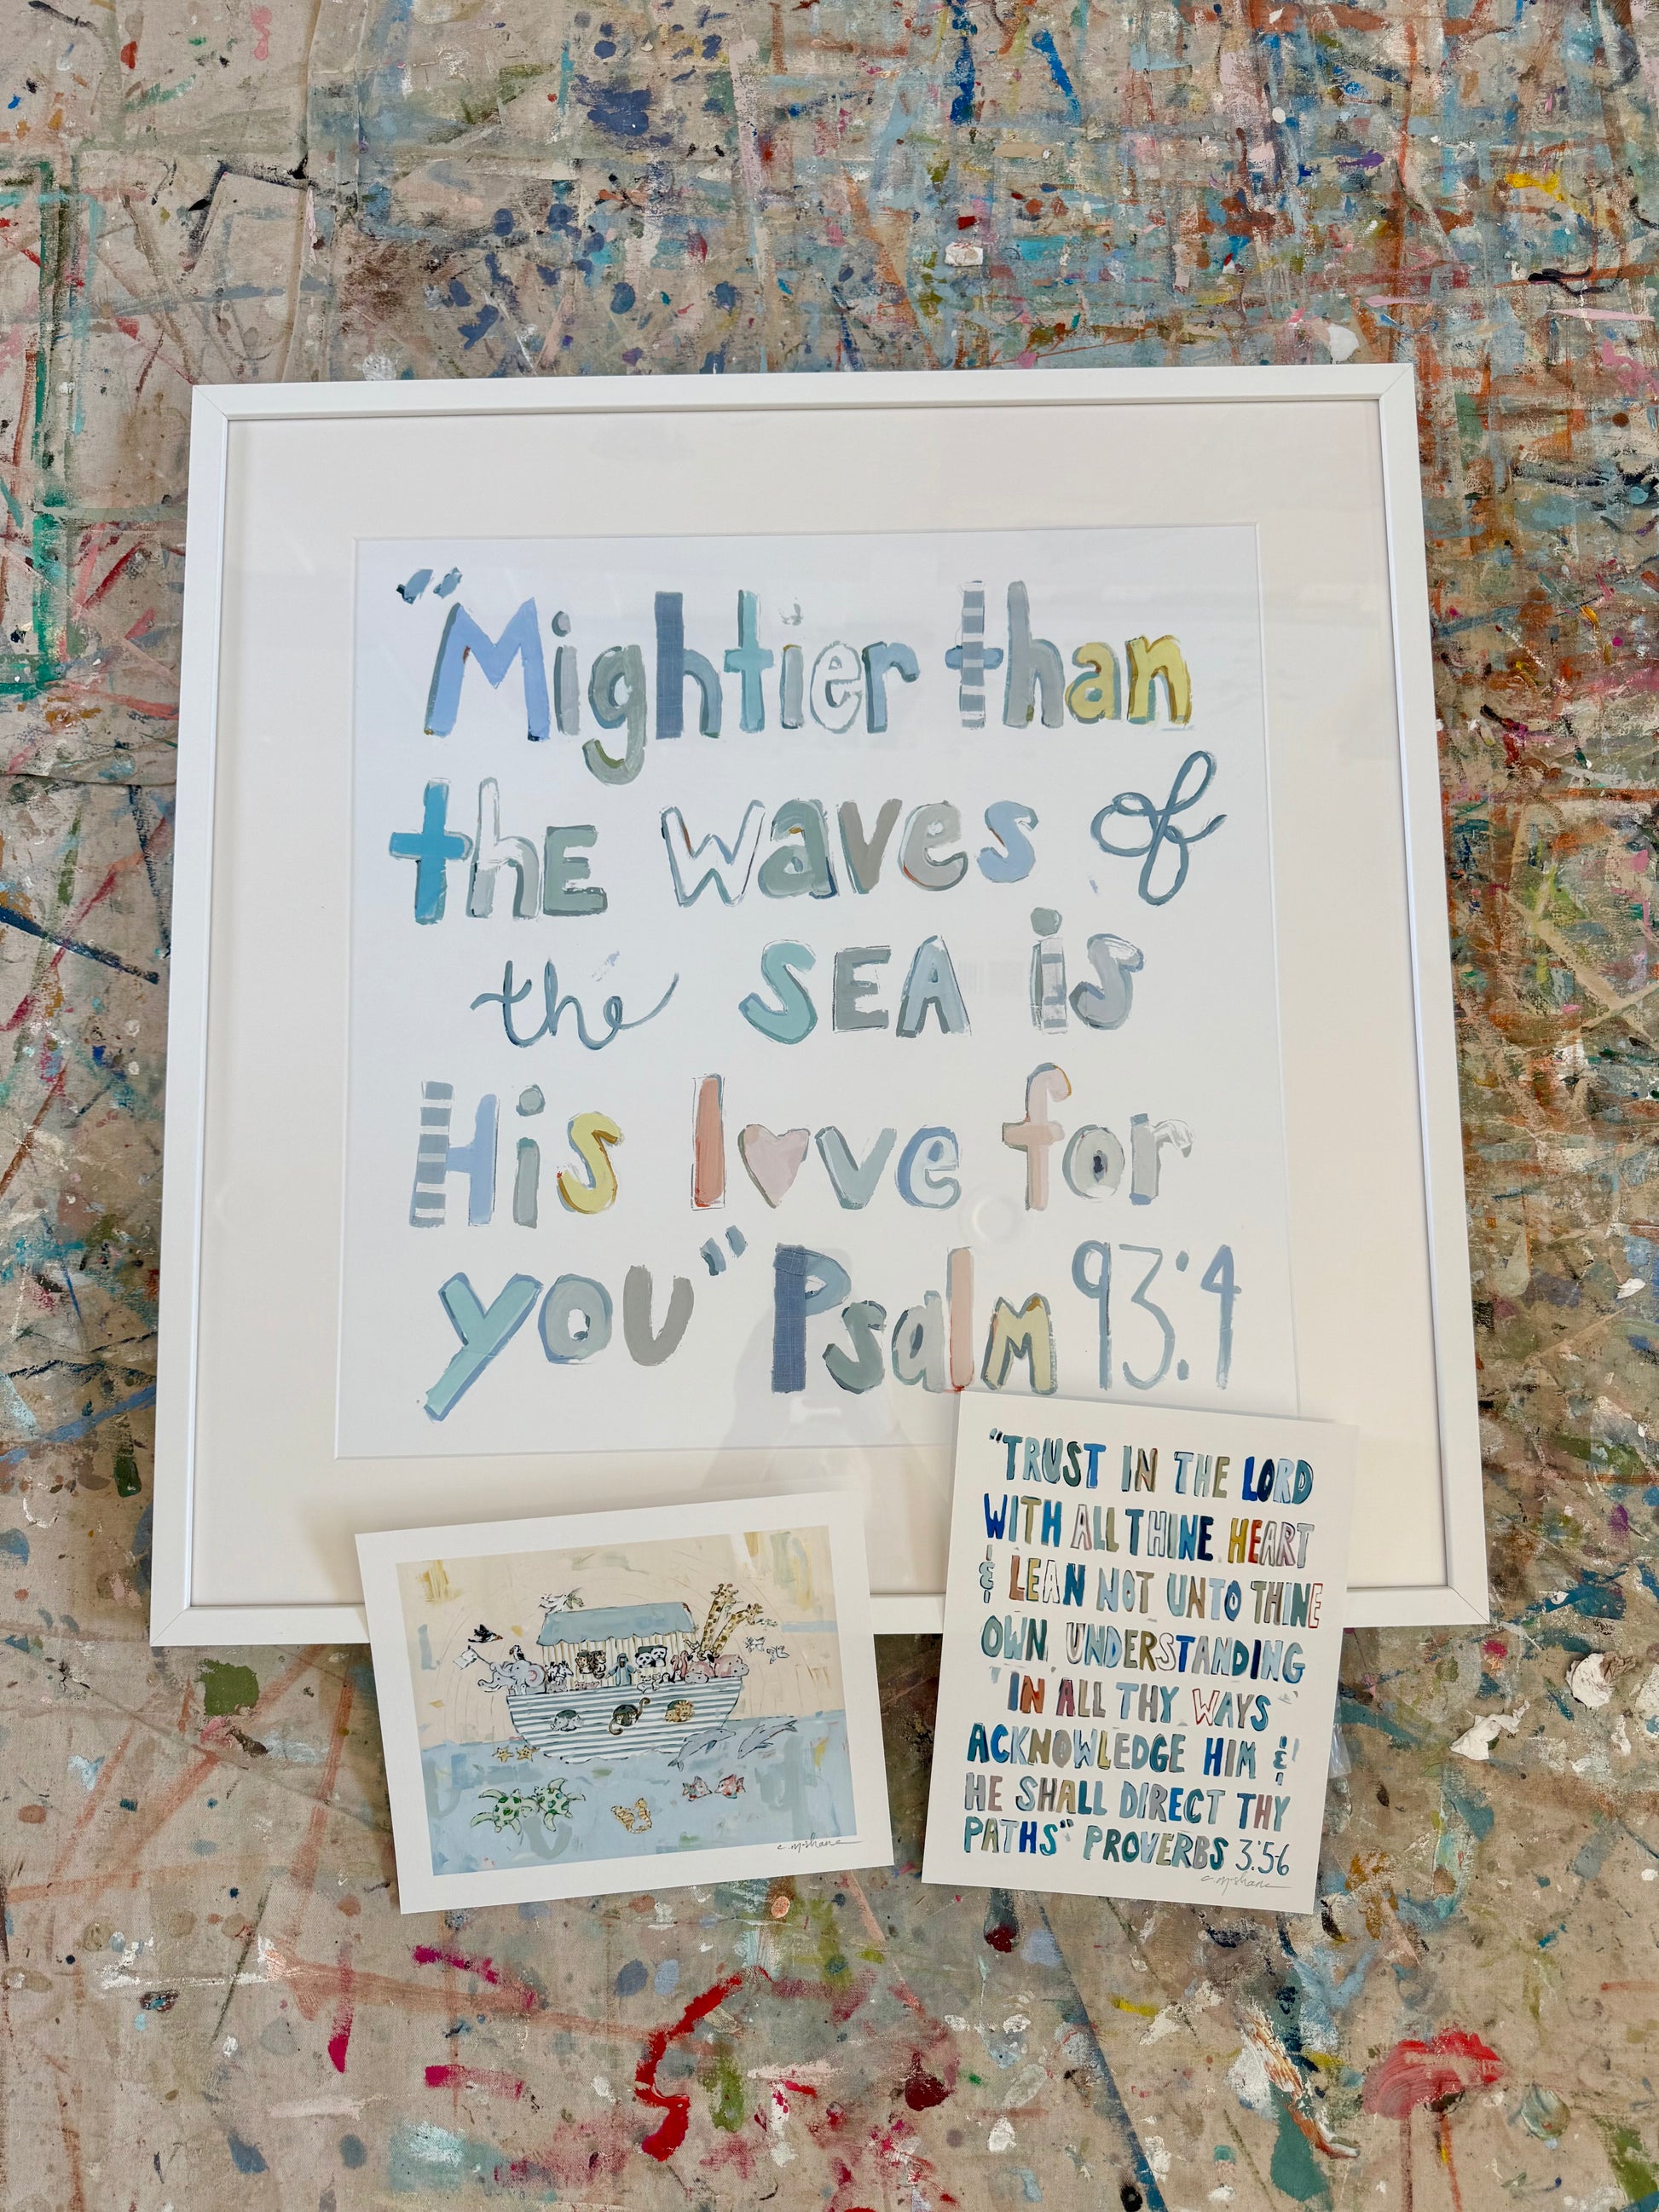 "Mightier than
thE waves of
the SEA is
His love for
you" Psalm 93:4
"TRUST IN THE LORD
WITH ALL THINE HEART
& LEAN NOT UNTO THINE
OWN UNDERSTANDING
IN ALL THY WAYS
ACKNOWLEDGE HIM &
HE SHALL DIRECT THY
PATHS" PROVERBS 3:5-6
c. mcshane
c. mcshane